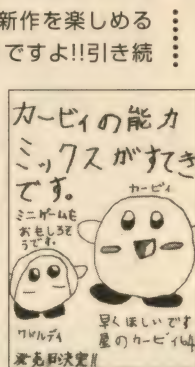 新作を楽しめる
ですよ!!引き続
カービィの能力
ミックスがすてき
です。
ミニゲームも
おもしろそ
うです。
カービィ
ワドルディ
早くほしいです
星のカービィ64
発売日決定!!